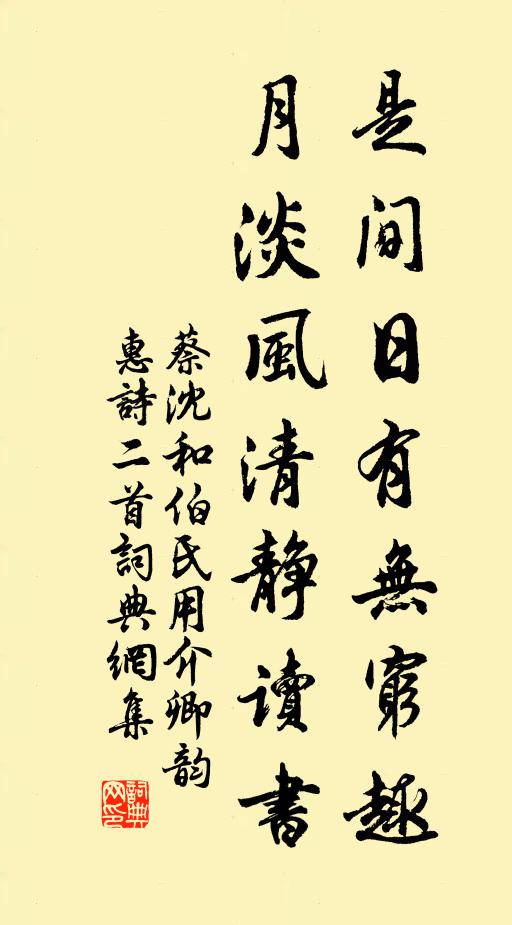 是間日有無窮趣
月淡風清静讀書
蔡沈和伯氏用介卿韵
惠詩二首詞典網集
詞典網印